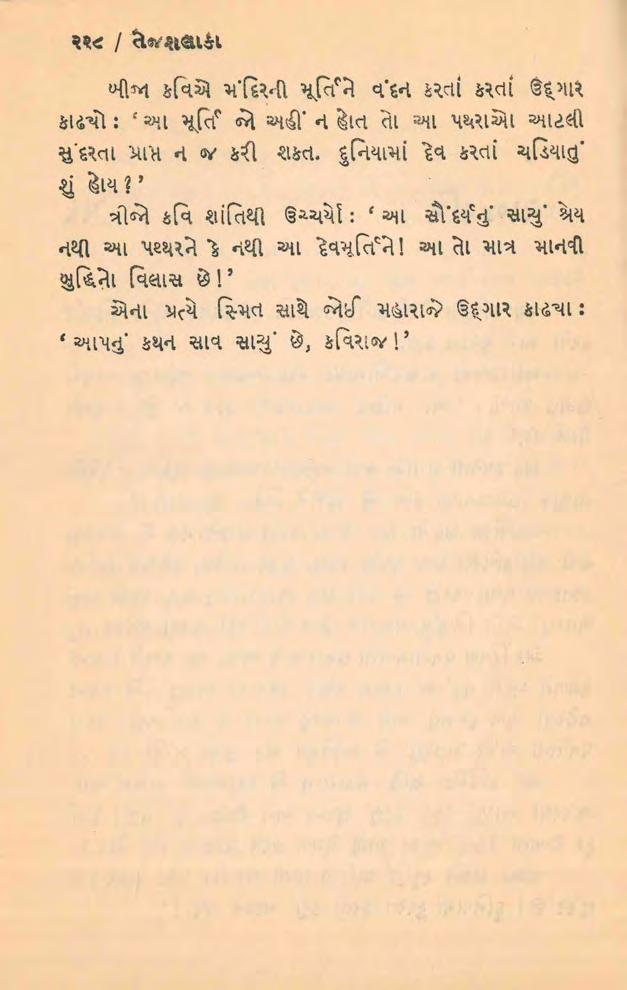 ૨૨૮ / તેજશલાકા
બીજા કવિએ મંદિરની મૂર્તિને વંદન કરતાં કરતાં ઉદ્ગાર
કાઢ્યો : ‘ આ મૂર્તિ જો અહીં ન હોત તો આ પથરાઓ આટલી
સુંદરતા પ્રાપ્ત ન જ કરી શકત. દુનિયામાં દેવ કરતાં ચડિયાતું
શું હોય ? ’
ત્રીજો કવિ શાંતિથી ઉચ્ચર્યો : ‘ આ સૌંદર્યનું સાચું શ્રેય
નથી આ પથ્થરને કે નથી આ દેવમૂર્તિને! આ તો માત્ર માનવી
બુદ્ધિનો વિલાસ છે !’
એના પ્રત્યે સ્મિત સાથે જોઈ મહારાજે ઉદ્ગાર કાઢ્યા :
‘ આપનું કથન સાવ સાચું છે, કવિરાજ !’